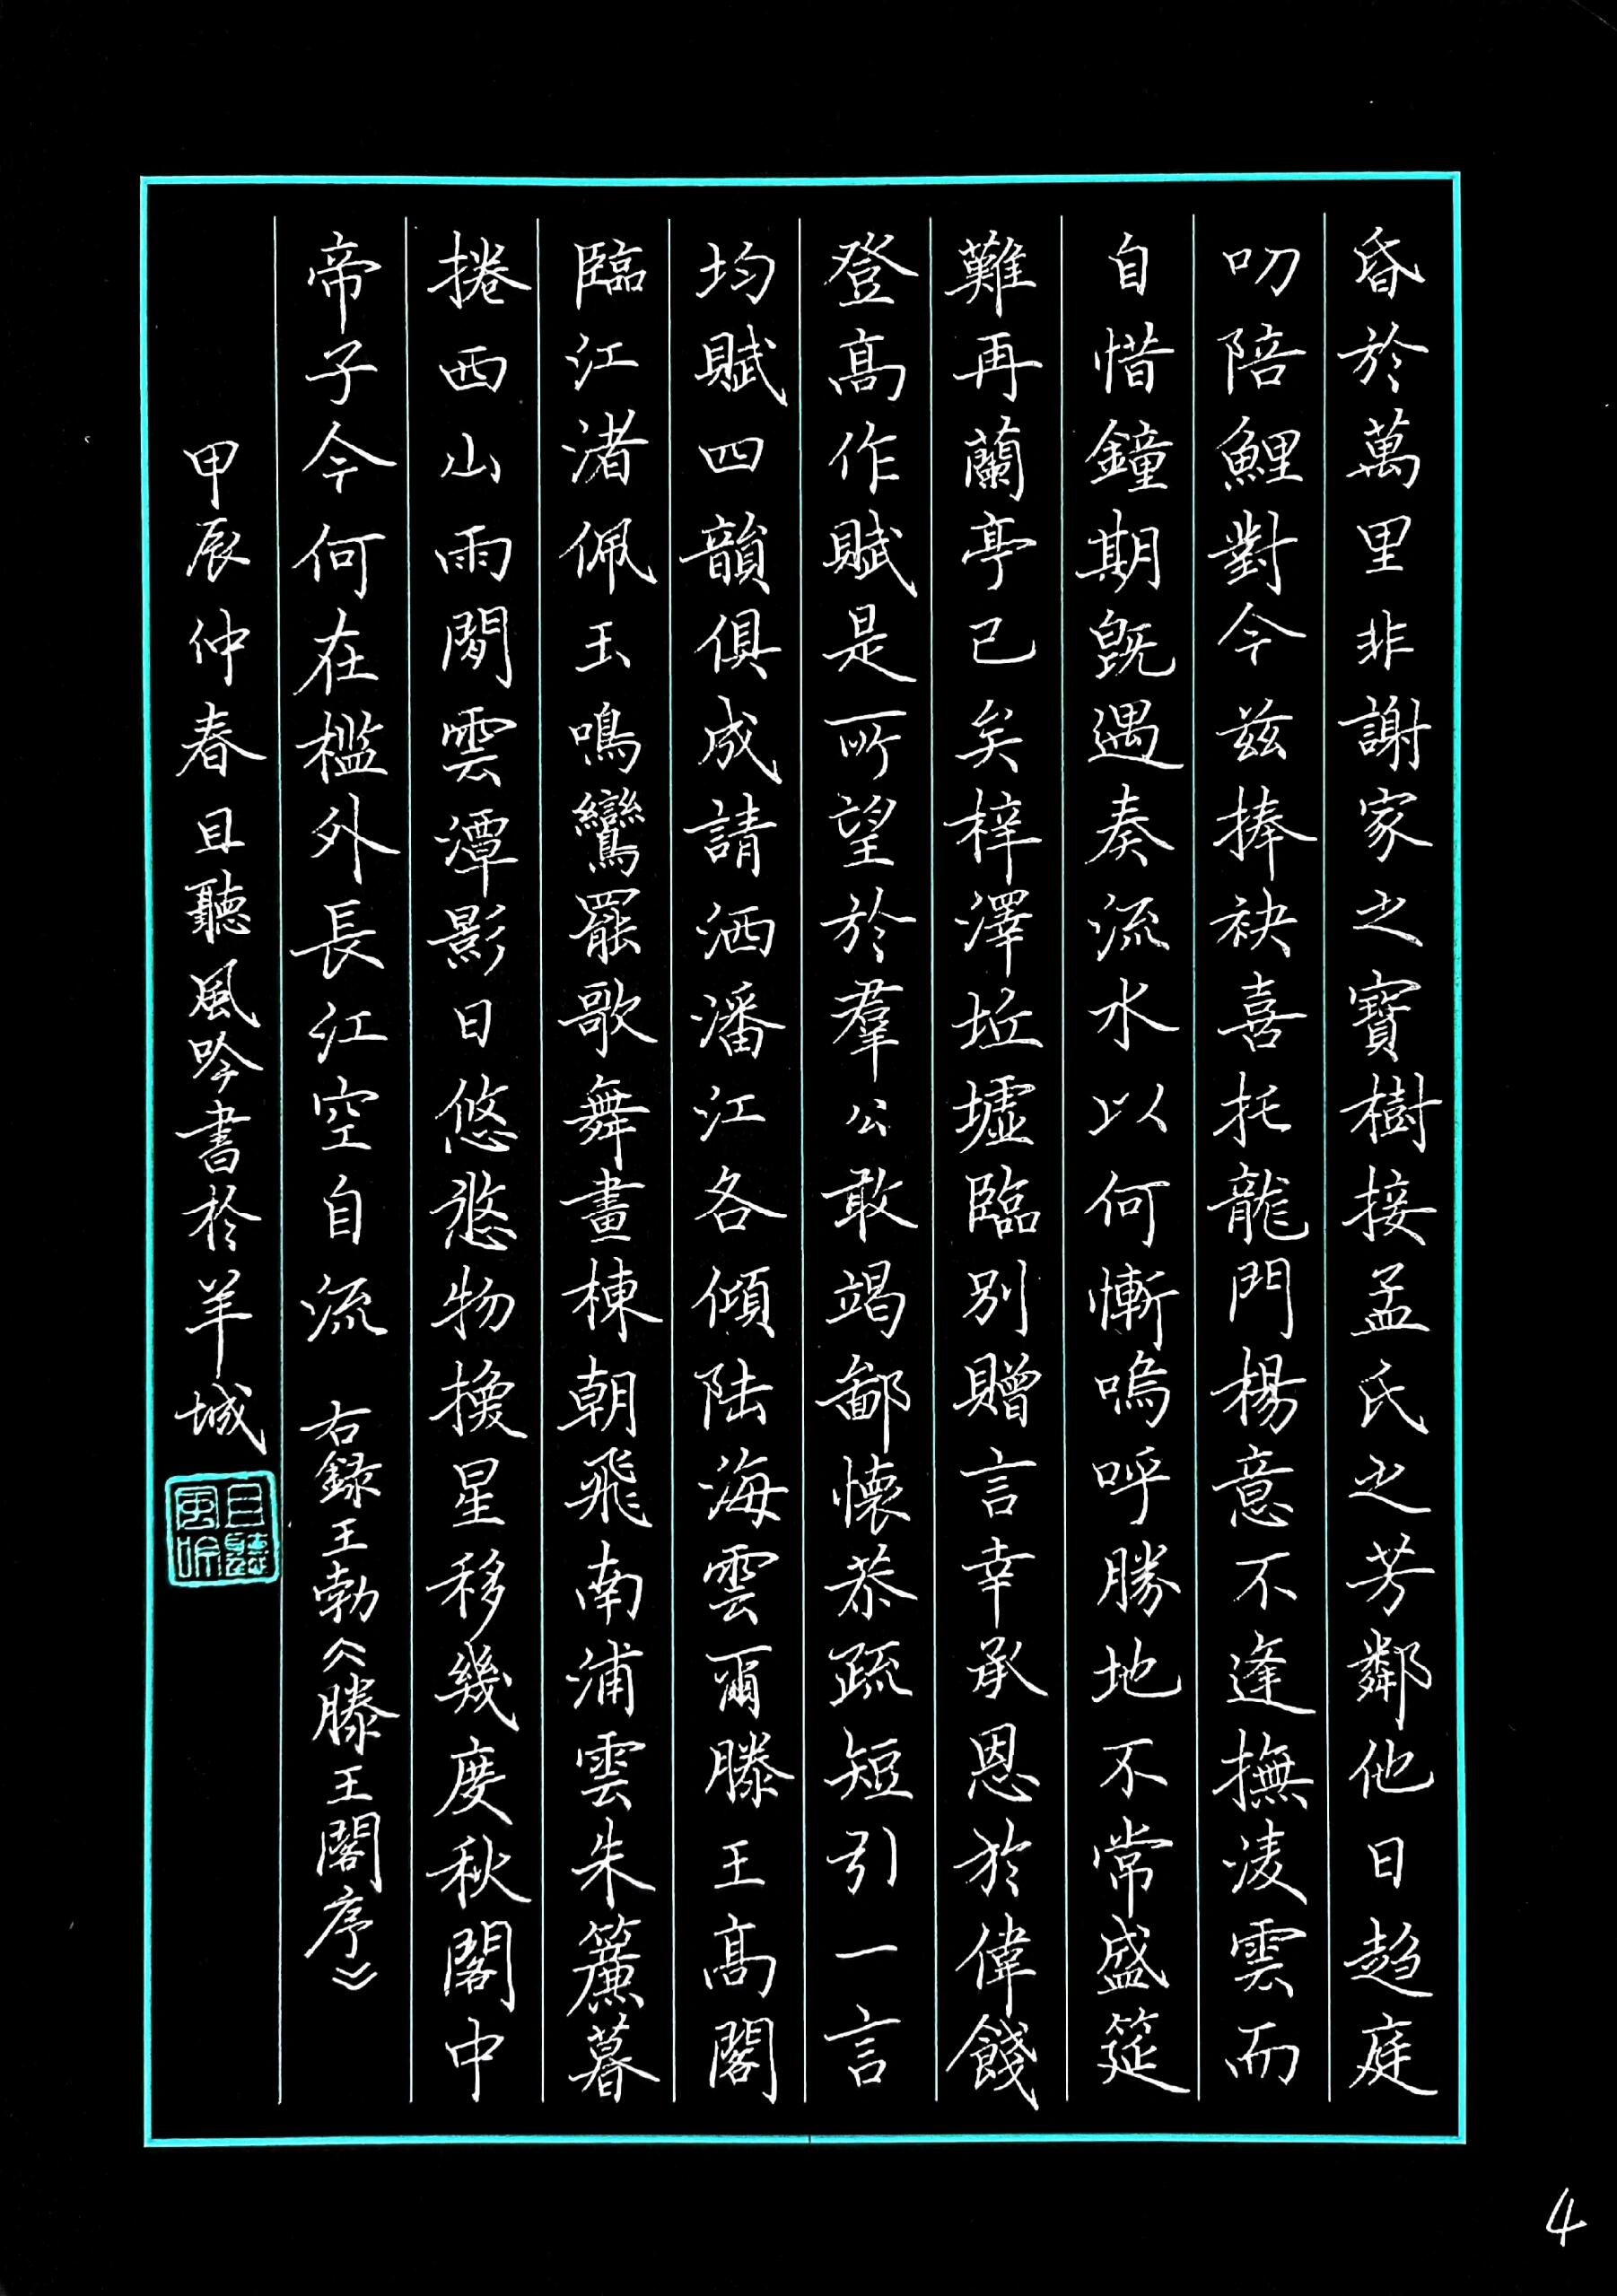 昏於萬里非謝家之寶樹接孟氏之芳鄰他日趨庭
叨陪鯉對今茲捧袂喜托龍門楊意不逢撫凌雲而
自惜鐘期既遇奏流水以何慚嗚呼勝地不常盛筵
難再蘭亭已矣梓澤坵墟臨別贈言幸承恩於偉餞
登高作賦是所望於羣公敢竭鄙懷恭疏短引一言
均賦四韻俱成請洒潘江各傾陸海雲爾滕王高閣
臨江渚佩玉鳴鸞罷歌舞畫棟朝飛南浦雲朱簾暮
捲西山雨閒雲潭影日悠悠物換星移幾度秋閣中
帝子今何在檻外長江空自流 右錄王勃《滕王閣序》
甲辰仲春且聽風吟書於羊城
且聽風吟
4